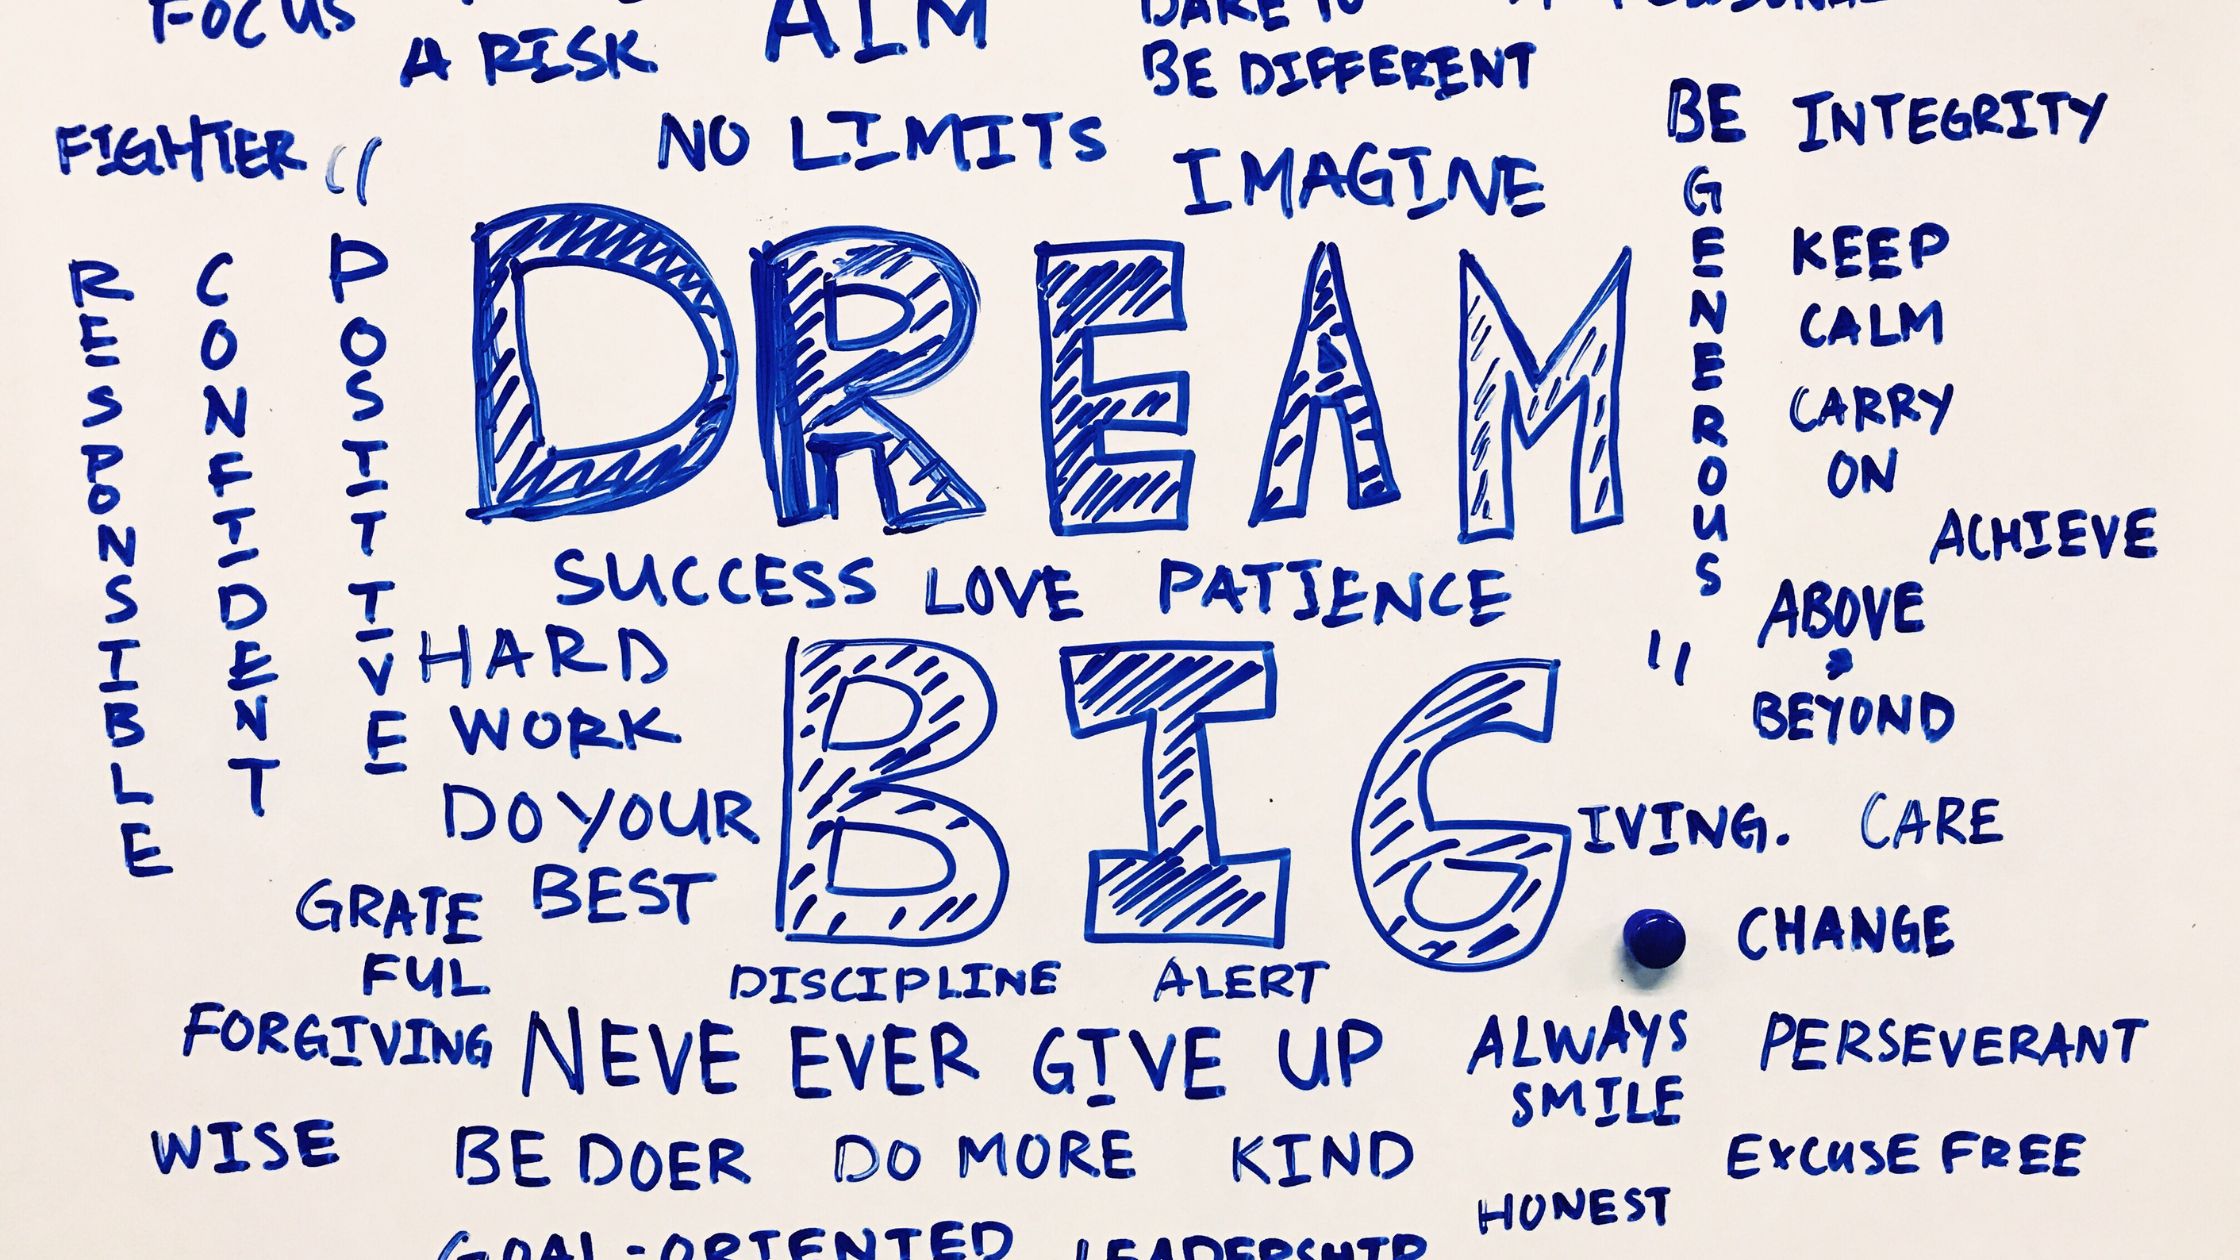 FOCUS
A RISK
AIM
DARE TO
BE DIFFERENT
FIGHTER
NO LIMITS
IMAGINE
BE
GENEROUS
INTEGRITY
RESPONSIBLE
CONFIDENT
"POSITTIVE
DREAM
KEEP
CALM
CARRY
ON
ACHIEVE
SUCCESS LOVE PATIENCE
HARD
WORK
DO YOUR
BEST
BIG"
ABOVE
&
BEYOND
GIVING. CARE
CHANGE
GRATE
FUL
DISCIPLINE ALERT
FORGIVING
NEVE EVER GIVE UP
ALWAYS
SMILE
PERSEVERANT
WISE
BE DOER
DO MORE
KIND
EXCUSE FREE
HONEST
GOAL-ORIENTED
LEADERSHIP